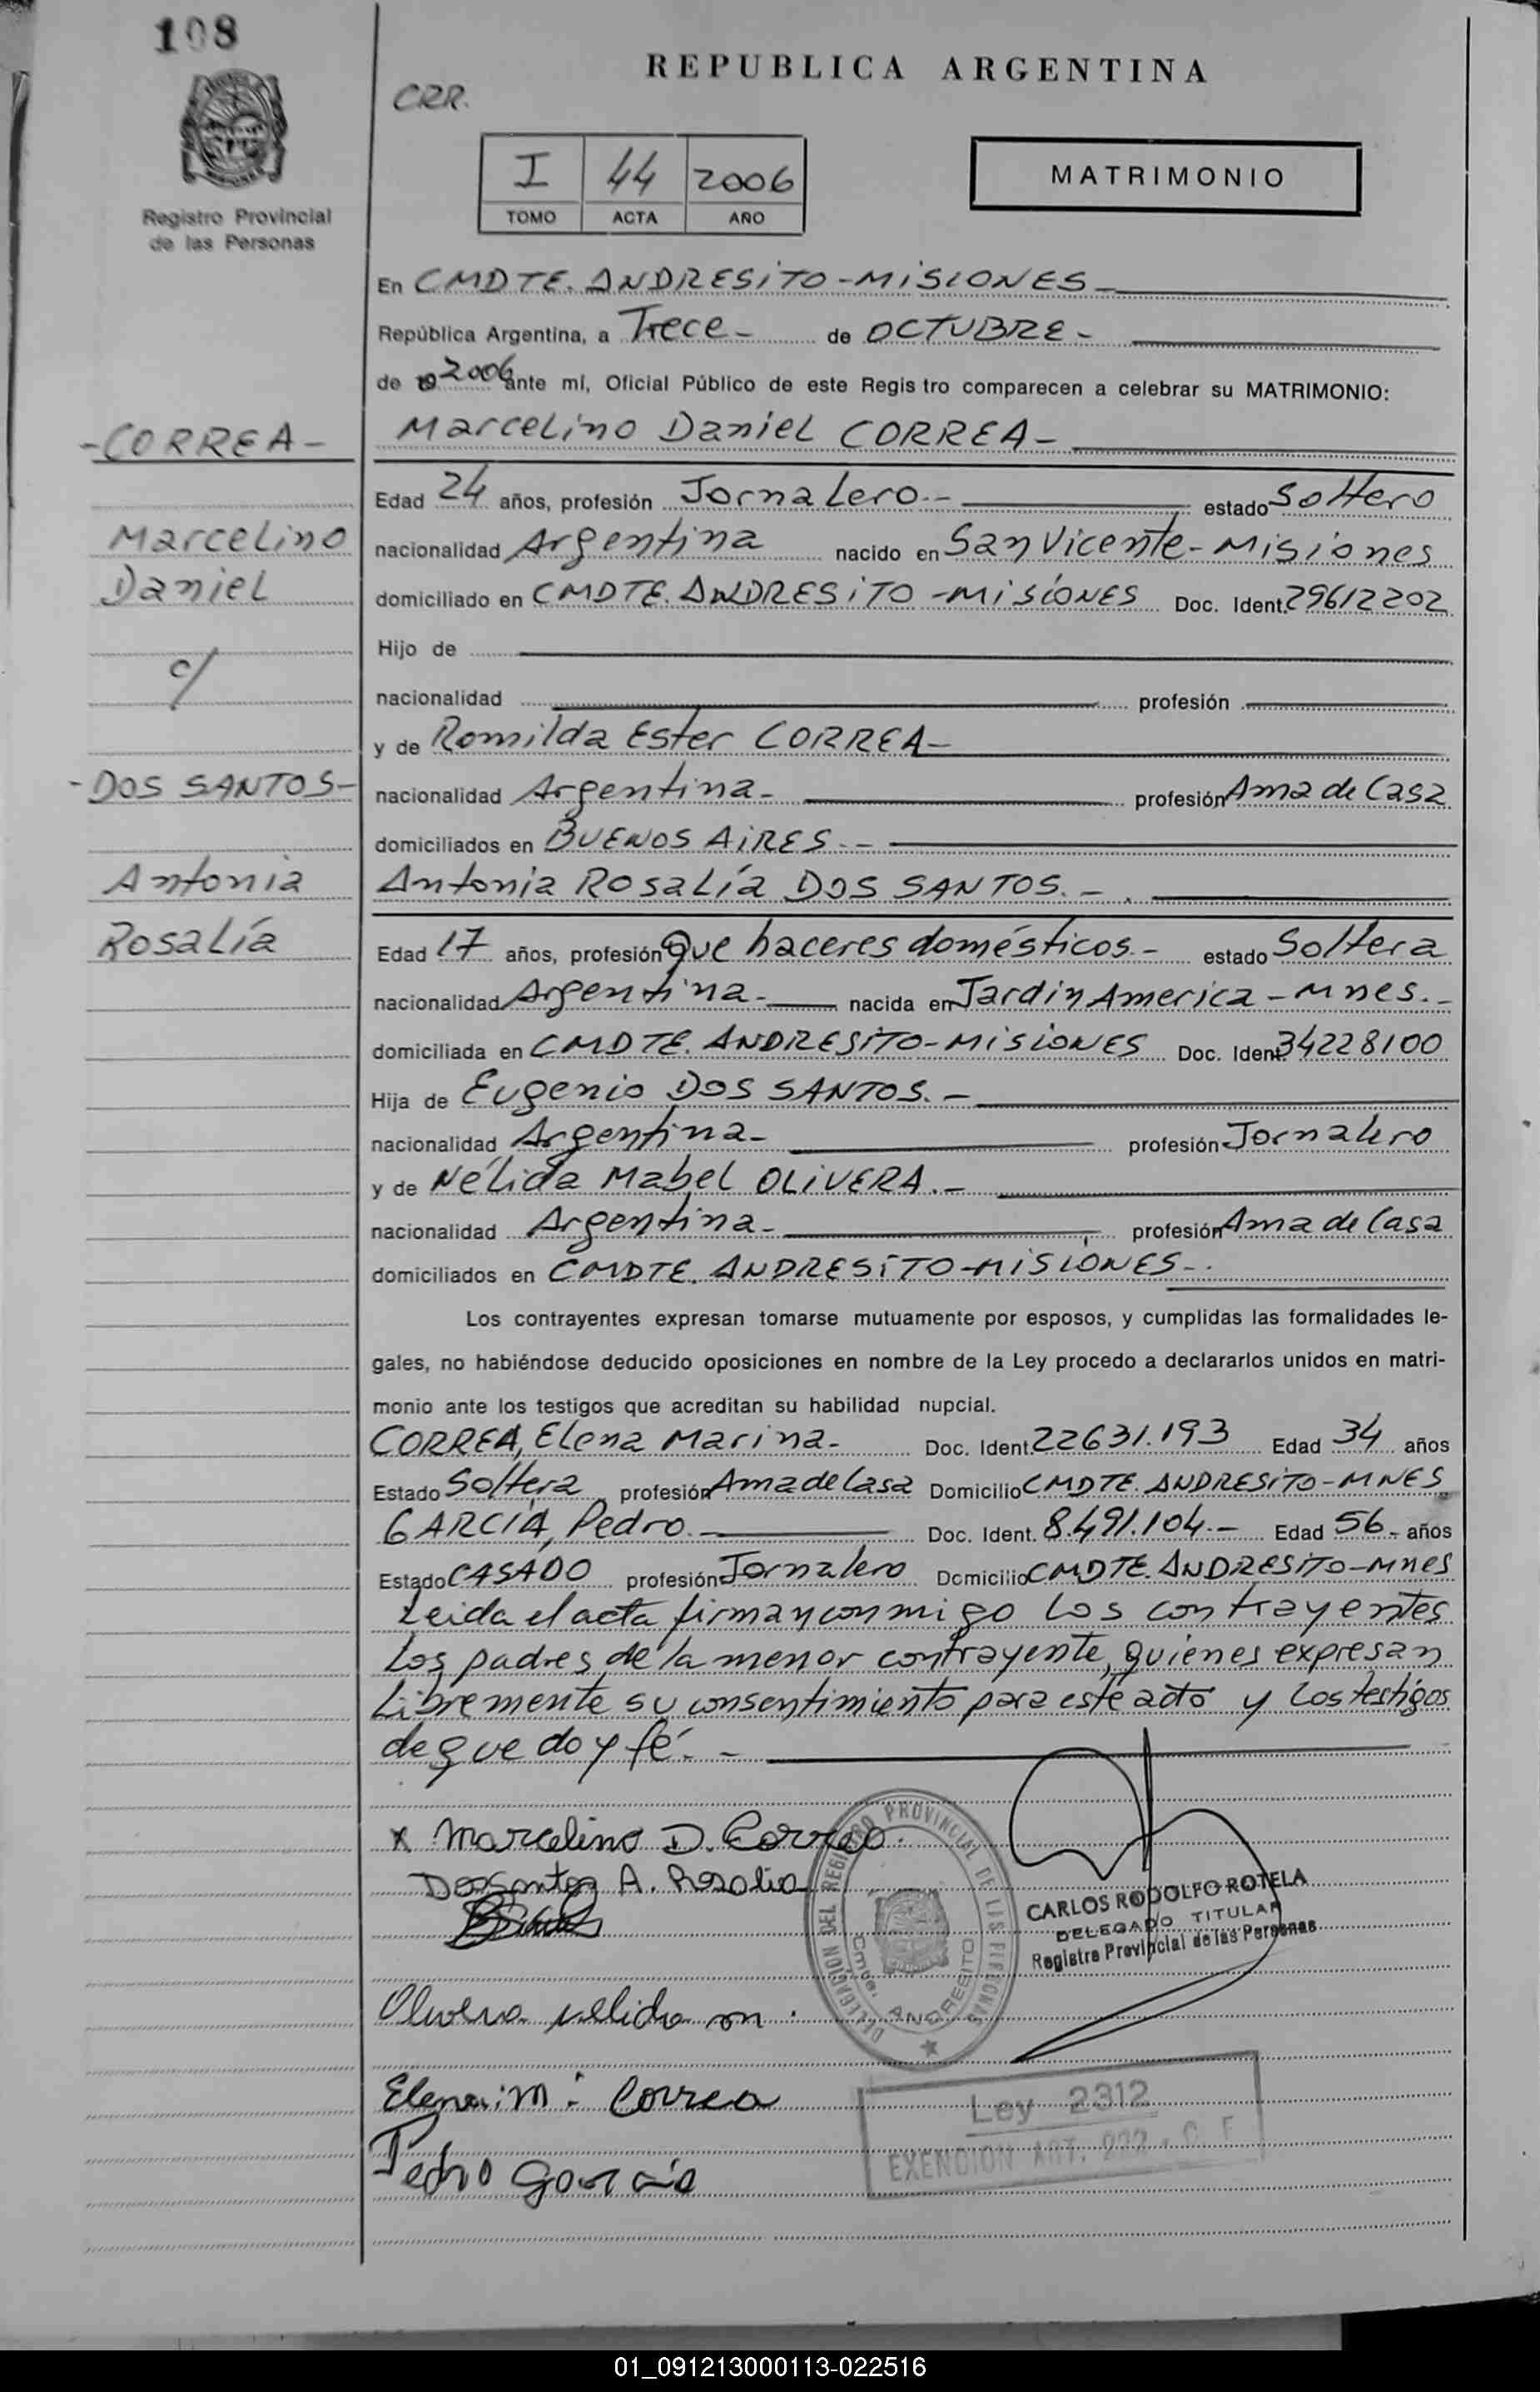 108
REPUBLICA ARGENTINA
CRR.
I 44 2006
TOMO ACTA AÑO
MATRIMONIO
Registro Provincial
de las Personas
En CMDTE. ANDRESITO - MISIONES -
República Argentina, a Trece - de OCTUBRE -
de 19 2006 ante mí, Oficial Público de este Regis tro comparecen a celebrar su MATRIMONIO:
- CORREA -
Marcelino Daniel CORREA -
Edad 24 años, profesión Jornalero. - estado Soltero
Marcelino
nacionalidad Argentina nacido en San Vicente - Misiones
Daniel
domiciliado en CMDTE. ANDRESITO - MISIONES Doc. Ident. 29612202
Hijo de
c/
nacionalidad profesión
y de Romilda Ester CORREA -
- DOS SANTOS -
nacionalidad Argentina - profesión Ama de Casa
domiciliados en BUENOS AIRES. -
Antonia
Antonia Rosalía DOS SANTOS. -
Rosalía
Edad 17 años, profesión Que haceres domésticos. - estado Soltera
nacionalidad Argentina. - nacida en Jardin America - Mnes. -
domiciliada en CMDTE. ANDRESITO - MISIONES Doc. Ident. 34228100
Hija de Eugenio DOS SANTOS. -
nacionalidad Argentina - profesión Jornalero
y de Nélida Mabel OLIVERA. -
nacionalidad Argentina - profesión Ama de Casa
domiciliados en CMDTE. ANDRESITO - MISIONES - .
Los contrayentes expresan tomarse mutuamente por esposos, y cumplidas las formalidades le-
gales, no habiéndose deducido oposiciones en nombre de la Ley procedo a declararlos unidos en matri-
monio ante los testigos que acreditan su habilidad nupcial.
CORREA, Elena Marina - Doc. Ident. 22631.193 Edad 34 años
Estado Soltera profesión Ama de Casa Domicilio CMDTE. ANDRESITO - MNES
GARCÍA, Pedro. - Doc. Ident. 8.491.104. - Edad 56 - años
Estado CASADO profesión Jornalero Domicilio CMDTE. ANDRESITO - Mnes
Leida el acta firman conmigo los contrayentes
los padres de la menor contrayente, quienes expresan
Libremente su consentimiento para este acto y los testigos
de que doy fé. -
x Marcelino D. Correa.
DosSantos A. Rosalia
DELEGACION DEL REGISTRO PROVINCIAL DE LAS PERSONAS
Cmde. ANDRESITO
CARLOS RODOLFO ROTELA
DELEGADO TITULAR
Registro Provincial de las Personas
Olivera nelida m.
Elena. M. Correa
Ley 2312
EXENCION ART. 232 - C. F.
Pedro Garcia
01_091213000113-022516